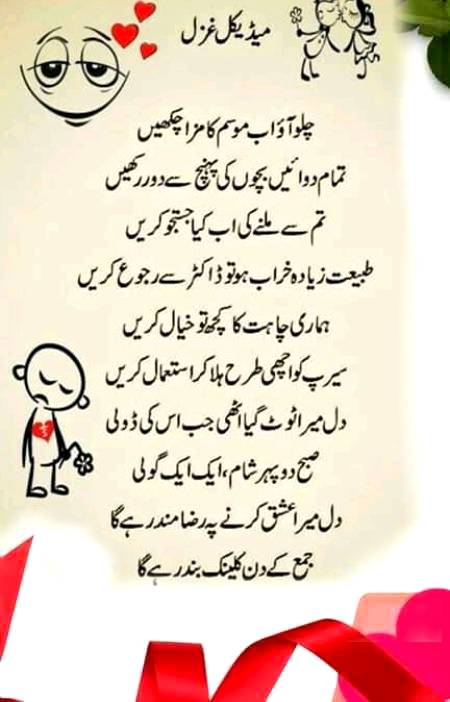 میڈیکل غزل
چلو آؤ اب موسم کا مزا چکھیں
تمام دوائیں بچوں کی پہنچ سے دور رکھیں
تم سے ملنے کی اب کیا جستجو کریں
طبیعت زیادہ خراب ہو تو ڈاکٹر سے رجوع کریں
ہماری چاہت کا کچھ تو خیال کریں
سیرپ کو اچھی طرح ہلا کر استعمال کریں
دل میرا ٹوٹ گیا اٹھی جب اس کی ڈولی
صبح دوپہر شام، ایک ایک گولی
دل میرا عشق کرنے پہ رضا مند رہے گا
جمع کے دن کلینک بند رہے گا